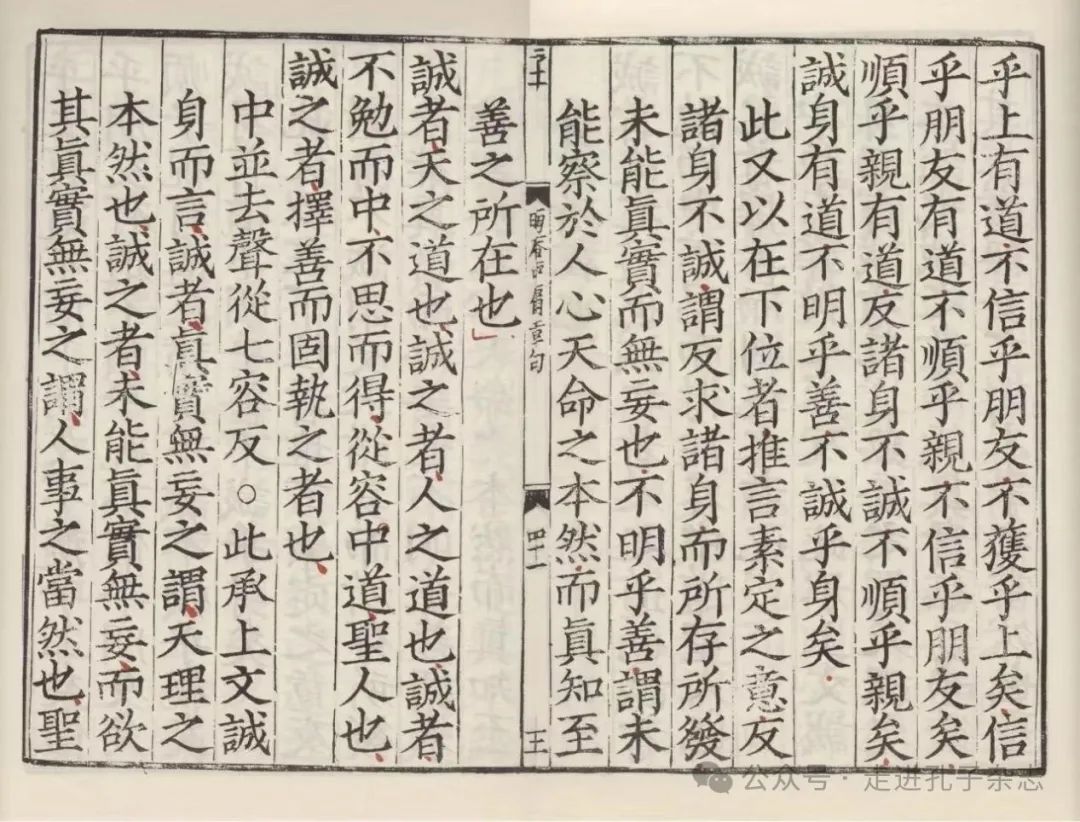 乎上有道不信乎朋友不獲乎上矣信
乎朋友有道不順乎親不信乎朋友矣
順乎親有道反諸身不誠不順乎親矣
誠身有道不明乎善不誠乎身矣
此又以在下位者推言素定之意反
諸身不誠謂反求諸身而所存所發
未能眞實而無妄也不明乎善謂未
能察於人心天命之本然而眞知至
善之所在也
誠者天之道也誠之者人之道也誠者
不勉而中不思而得從容中道聖人也
誠之者擇善而固執之者也
中並去聲從七容反○此承上文誠
身而言誠者眞實無妄之謂天理之
本然也誠之者未能眞實無妄而欲
其眞實無妄之謂人事之當然也聖
章句
公众号 · 走进孔子杂志